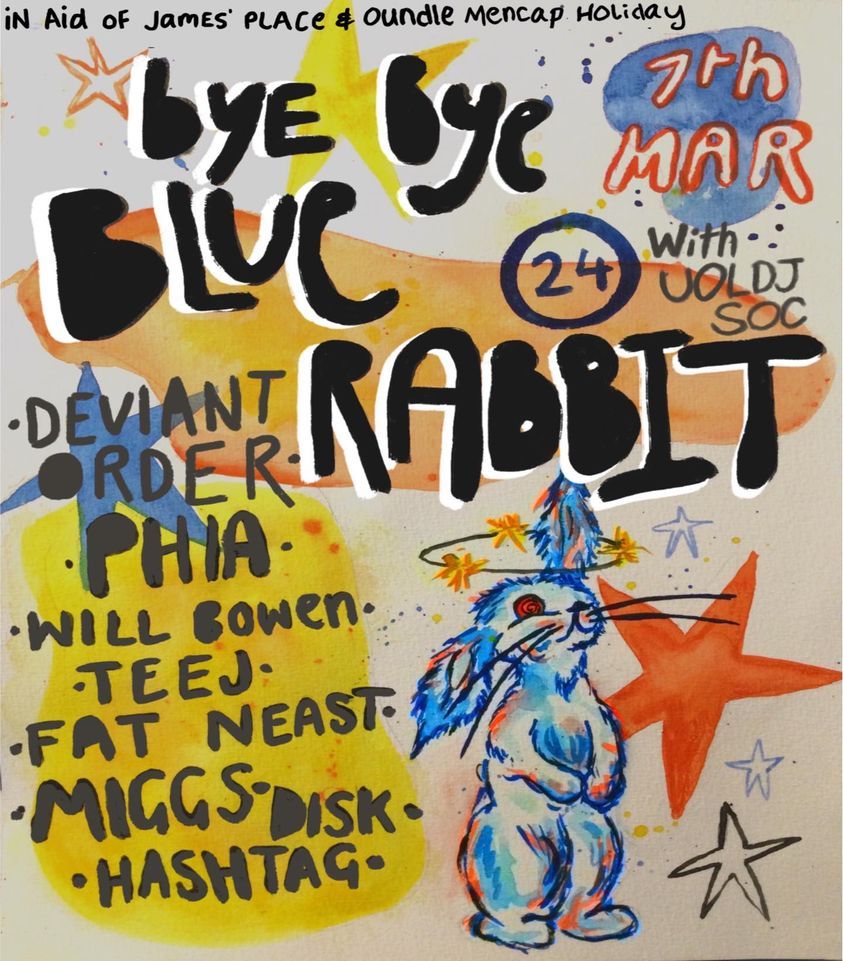 iN Aid OF JAMES' PLACE & OUNDLE MENCAP HOLIDAY
bYE Bye
BLUE
RABBIT
7th
MAR
24
With
UOLDJ
SOC
·DEVIANT
ORDER·
·PHIA·
·WILL Bowen·
·TEEJ·
·FAT NEAST·
·MIGGS·DISK·
·HASHTAG·